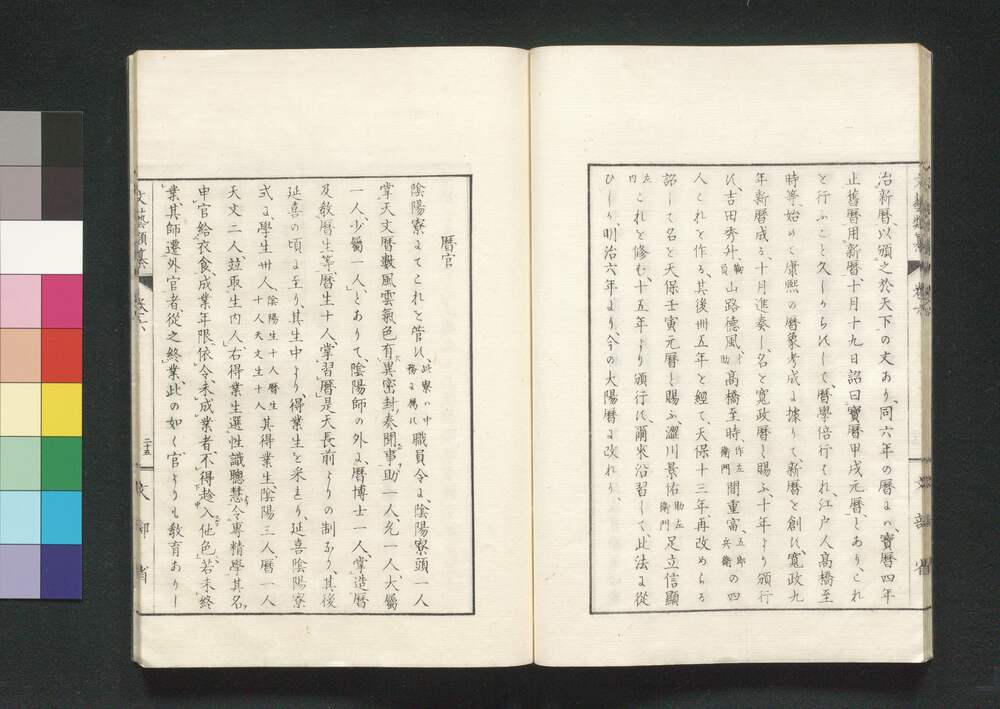 治新暦以頒之於天下の文あり、同六年の暦には、寶暦四年
止舊暦用新暦十月十九日詔曰寶暦甲戌元暦とあり、これ
と行ふこと久しからずして、暦學倍行もれ、江戸人高橋至
時等、始めて康熙の暦象考成に據りて、新暦と創む、寛政九
年新暦成る、十月進奏し、名と寛政暦と賜ふ、十年より頒行
す、吉田秀升、山路德風、高橋至時、作左衛門間重富、五郎兵衛の四
人これと作る、其後卅五年と經て、天保十三年再改めらる
詔して名と天保壬寅元暦と賜ふ、澀川景佑助左衛門足立信顯
左内これと修む、十五年より頒行す、爾来沿習して、此法に從
ひしが、明治六年より、今の大陽暦に改れり、
暦官
陰陽寮にてこれと管す、此寮ハ中務に屬す職員令に、陰陽寮頭一人
掌天文暦數風雲氣色有異密封奏聞事助一人、允一人、大屬
一人、少屬一人、とありて、陰陽師の外に、暦博士一人、掌造暦
及教暦生等、暦生十人、掌習暦、是天長前よりの制なり、其後
延喜の頃に至り、其生中より得業生と采まり、延喜陰陽寮
式に、學生卅人、陰陽生十人暦生十人天文生十人其得業生、陰陽三人、暦一人
天文二人並取生内人、右得業生選性識聰慧、令專精學其名、
申官給衣食、成業年限、依令、未成業者、不得趁入他色、若未終
業、其師遷外官者、從之終業、此の如く官よりも教育ありし
文藝類纂
二十五
文部省
文部省